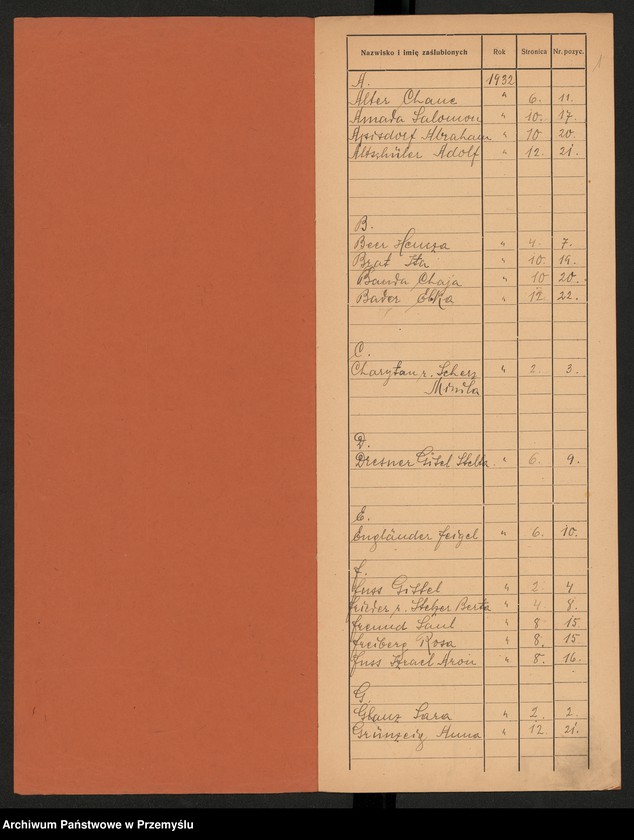 Nazwisko i imię zaślubionych Rok Stronica Nr. pozyc.
1
A. 1932
Alter Chane " 6. 11.
Amada Salomon " 10. 17.
Apisdorf Abraham " 10 20.
Altschüler Adolf " 12. 21.
B.
Beer " 4. 7.
Brat Ita " 10. 19.
Banda Chaja " 10 20.
Bader " 12 22.
C.
Charytan r. Scherz " 2. 3.
D.
Dresner Gisel " 6. 9.
E.
Engländer Feigel " 6. 10.
F.
Fuss Gittel " 2. 4
Frieder r. Stelzer Berta " 4 8.
Freund Saul " 8. 15
Freiberg Rosa " 8. 15
Fuss Izrael Aron " 8. 16.
G.
Glanz Sara " 2. 2.
Grünzeig Anna " 12 21.
Archiwum Państwowe w Przemyślu